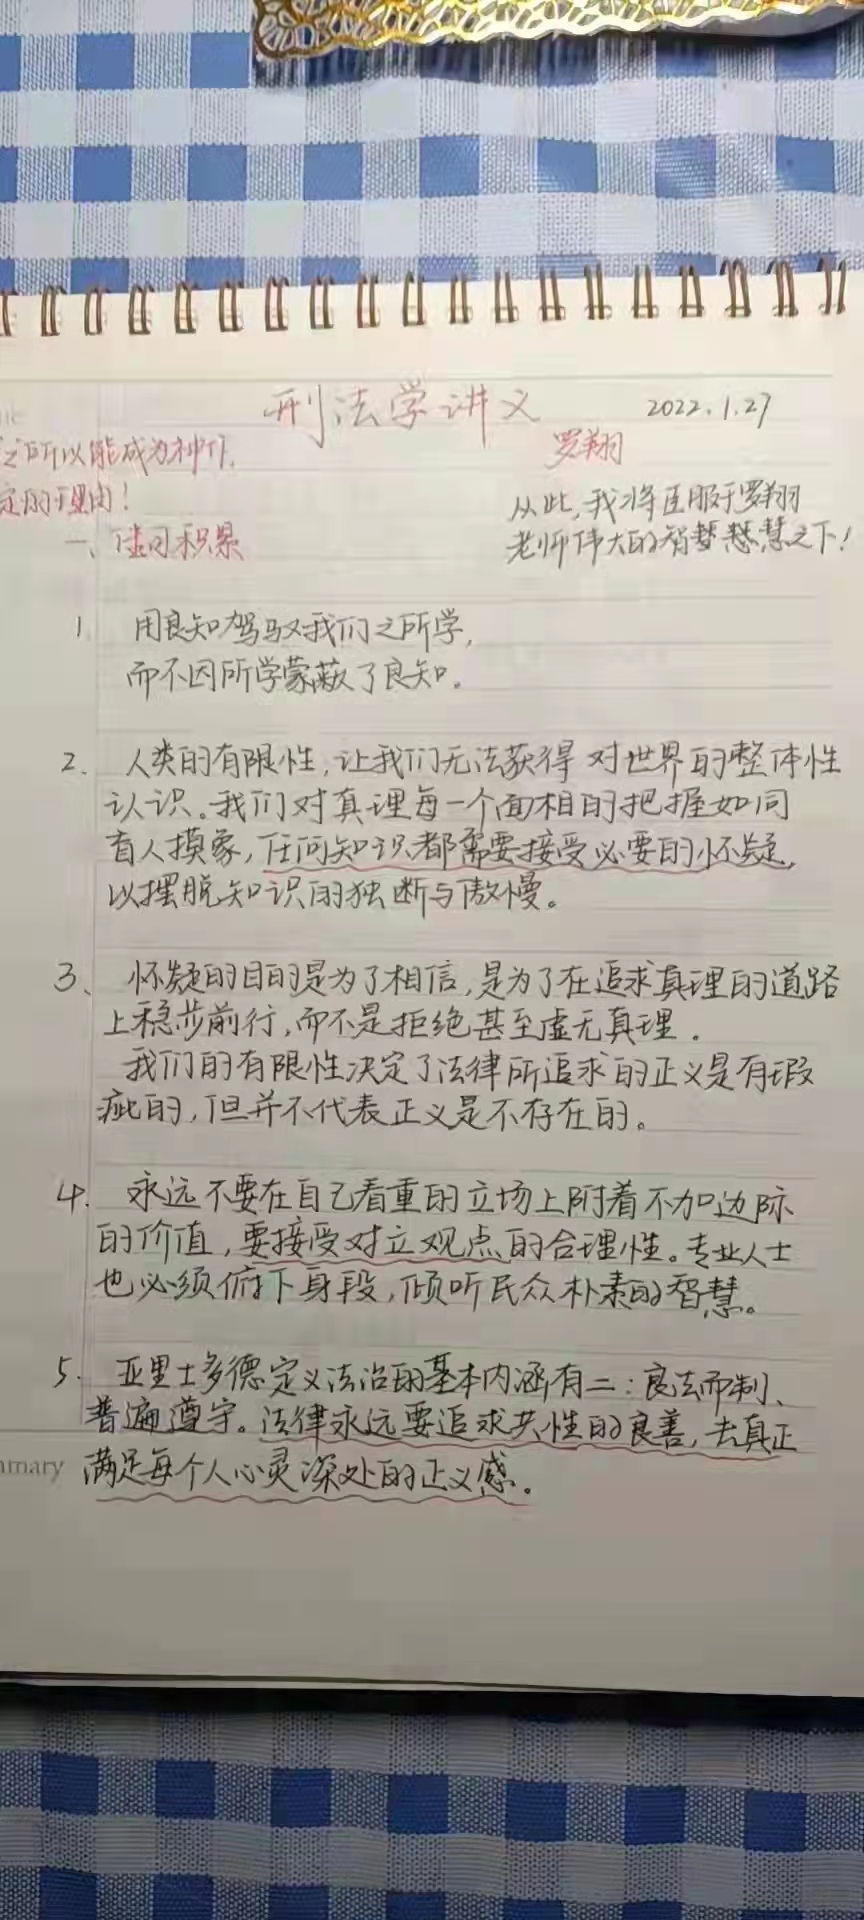 刑法学讲义 2022.1.27
之所以能成为神作,
罗翔
定的理由！
从此,我将臣服于罗翔
一、佳句积累
老师伟大的智慧之下！
1. 用良知驾驭我们之所学,
而不因所学蒙蔽了良知。
2. 人类的有限性,让我们无法获得对世界的整体性
认识。我们对真理每一个面相的把握如同
盲人摸象,任何知识都需要接受必要的怀疑,
以摆脱知识的独断与傲慢。
3、怀疑的目的是为了相信,是为了在追求真理的道路
上稳步前行,而不是拒绝甚至虚无真理.
我们的有限性决定了法律所追求的正义是有瑕
疵的,但并不代表正义是不存在的。
4. 永远不要在自己看重的立场上附着不加边际
的价值,要接受对立观点的合理性。专业人士
也必须俯下身段,倾听民众朴素的智慧。
5. 亚里士多德定义法治的基本内涵有二:良法而制、
普遍遵守。法律永远要追求共性的良善,去真正
mmary 满足每个人心灵深处的正义感。